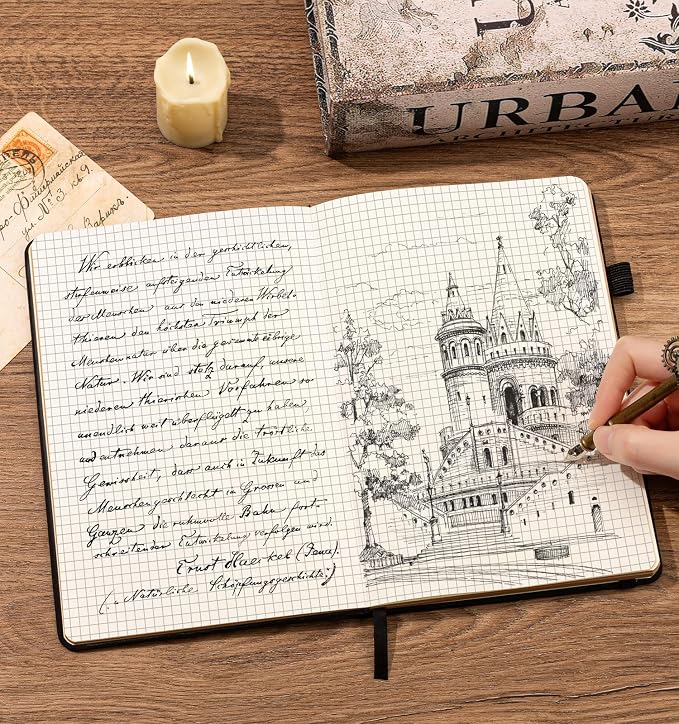 URBAN
ARCHITECTUR
ул. № 3. кв. 9
Wir erblicken in der geschichtlichen,
stufenweise aufsteigenden Entwickelung
des Menschen aus den niederen Wirbel-
thieren den höchsten Triumph der
Menschennatur über die gesammte übrige
Natur. Wir sind stolz darauf, unsere
niederen thierischen Vorfahren so
unendlich weit überflügelt zu haben
und entnehmen daraus die tröstliche
Gewissheit, dass auch in Zukunft das
Menschengeschlecht im Grossen und
Ganzen die ruhmvolle Bahn fort-
schreitender Entwickelung verfolgen wird.
Ernst Haeckel (Jena).
(: Natürliche Schöpfungsgeschichte:)